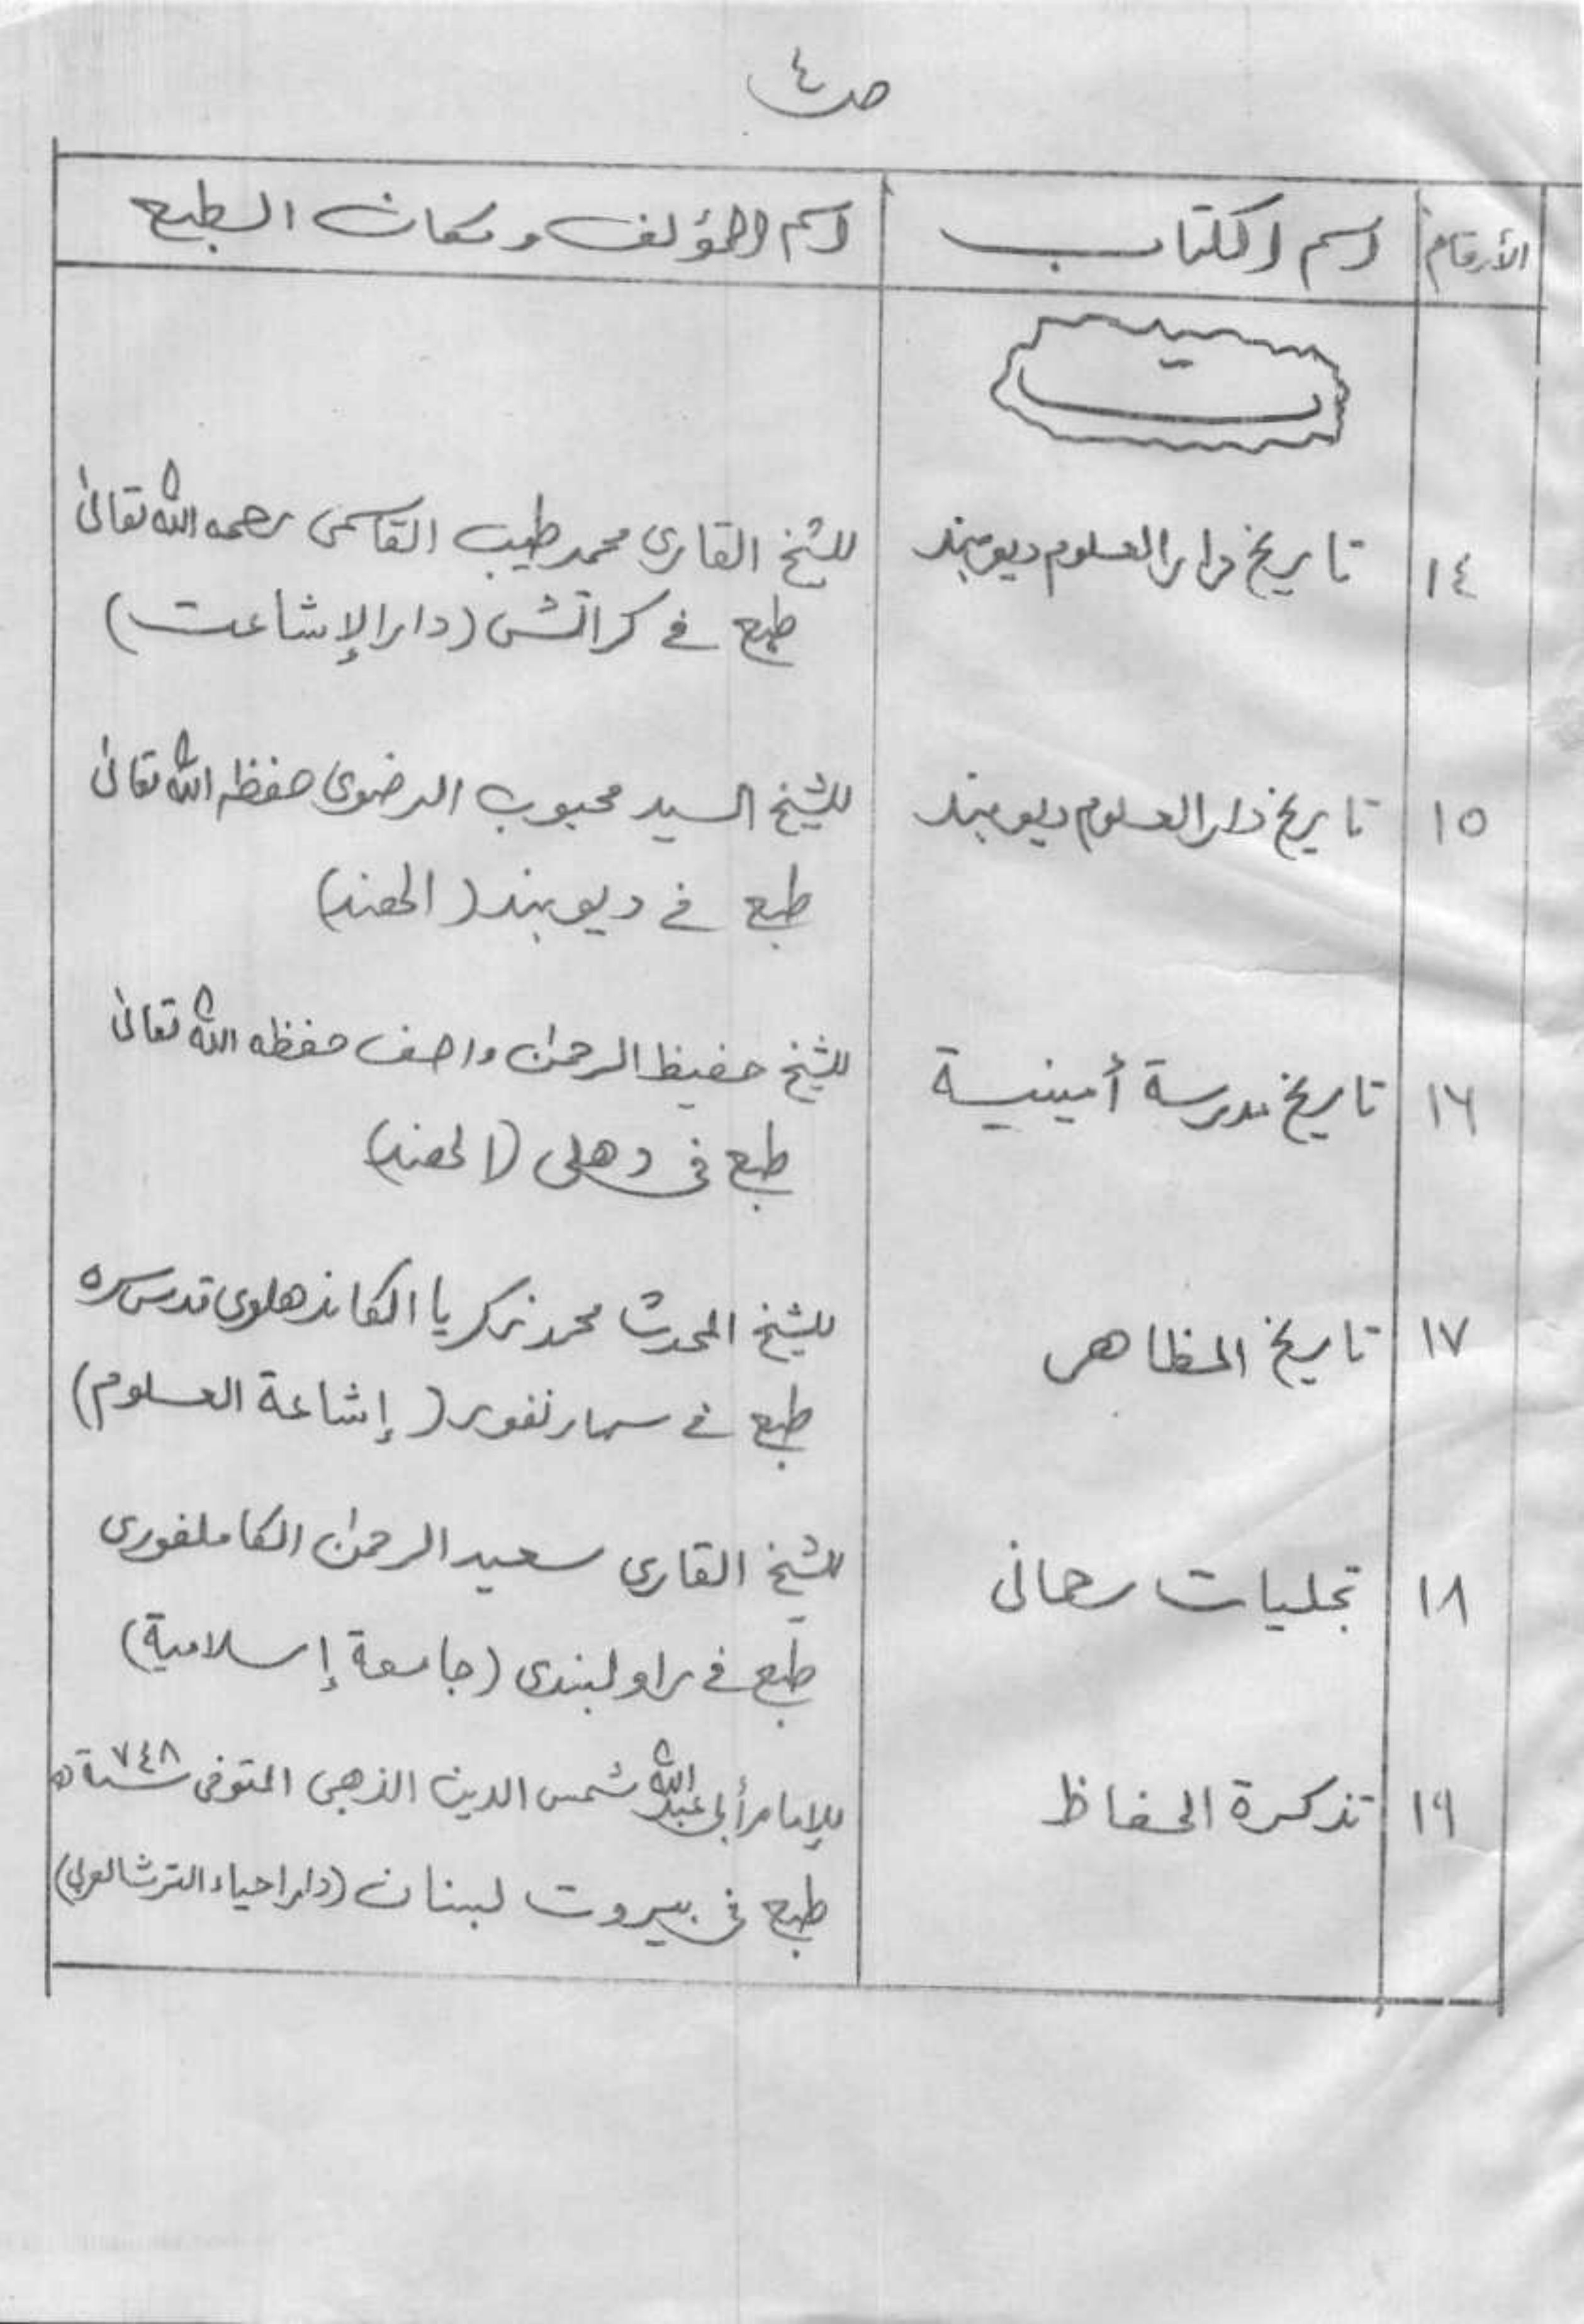 ص٤
الأرقام اسم الكتاب اسم المؤلف ومكان الطبع
ت
١٤ تاريخ دار العلوم ديوبند للشيخ القارى محمد طيب القاسمى رحمه الله تعالىٰ
طبع فى كراتشى (دار الإشاعت)
١٥ تاريخ دار العلوم ديوبند للشيخ السيد محبوب الرضوى حفظه الله تعالىٰ
طبع فى ديوبند (الهند)
١٦ تاريخ مدرسة أمينية للشيخ حفيظ الرحمٰن واصف حفظه الله تعالىٰ
طبع فى دهلى (الهند)
١٧ تاريخ المظاهر للشيخ المحدث محمد زكريا الكاندهلوى قدس سره
طبع فى سهارنفور (إشاعة العلوم)
١٨ تجليات رحمانى للشيخ القارى سعيد الرحمٰن الكاملفورى
طبع فى راولبندى (جامعة إسلامية)
١٩ تذكرة الحفاظ للإمام أبى عبد الله شمس الدين الذهبى المتوفى سنة ٧٤٨ ه
طبع فى بيروت لبنان (دار احياء الترث العربى)